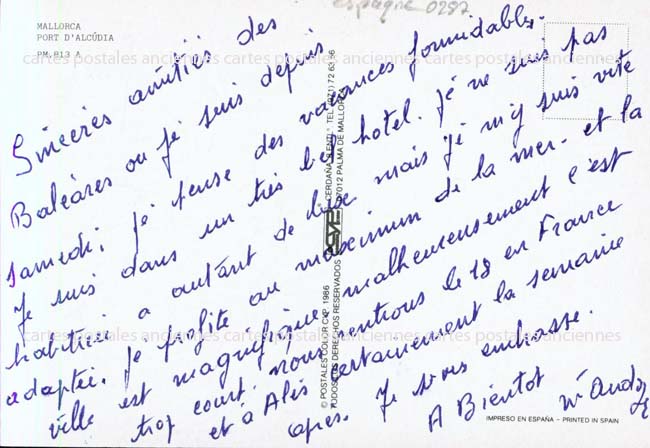 MALLORCA
PORT D'ALCÚDIA
PM. 813 A
espagne 0287
cartes postales anciennes cartes postales anciennes cartes postales anciennes
Sincères amitiés des
Baléares ou je suis depuis
samedi, je pense des vacances formidables.
Je suis dans un très bel hotel. Je ne suis pas
habituée a autant de luxe mais je m'y suis vite
adaptée. Je profite au maximum de la mer. et la
ville est magnifique malheureusement c'est
trop court. nous rentrons le 18 en France
et a Alès certainement la semaine
après. Je vous embrasse.
A Bientot
© POSTALES COLOR CYP. 1986
TODOS LOS DERECHOS RESERVADOS
07012 PALMA DE MALLORCA
cartes postales anciennes cartes postales anciennes cartes postales anciennes
IMPRESO EN ESPAÑA - PRINTED IN SPAIN